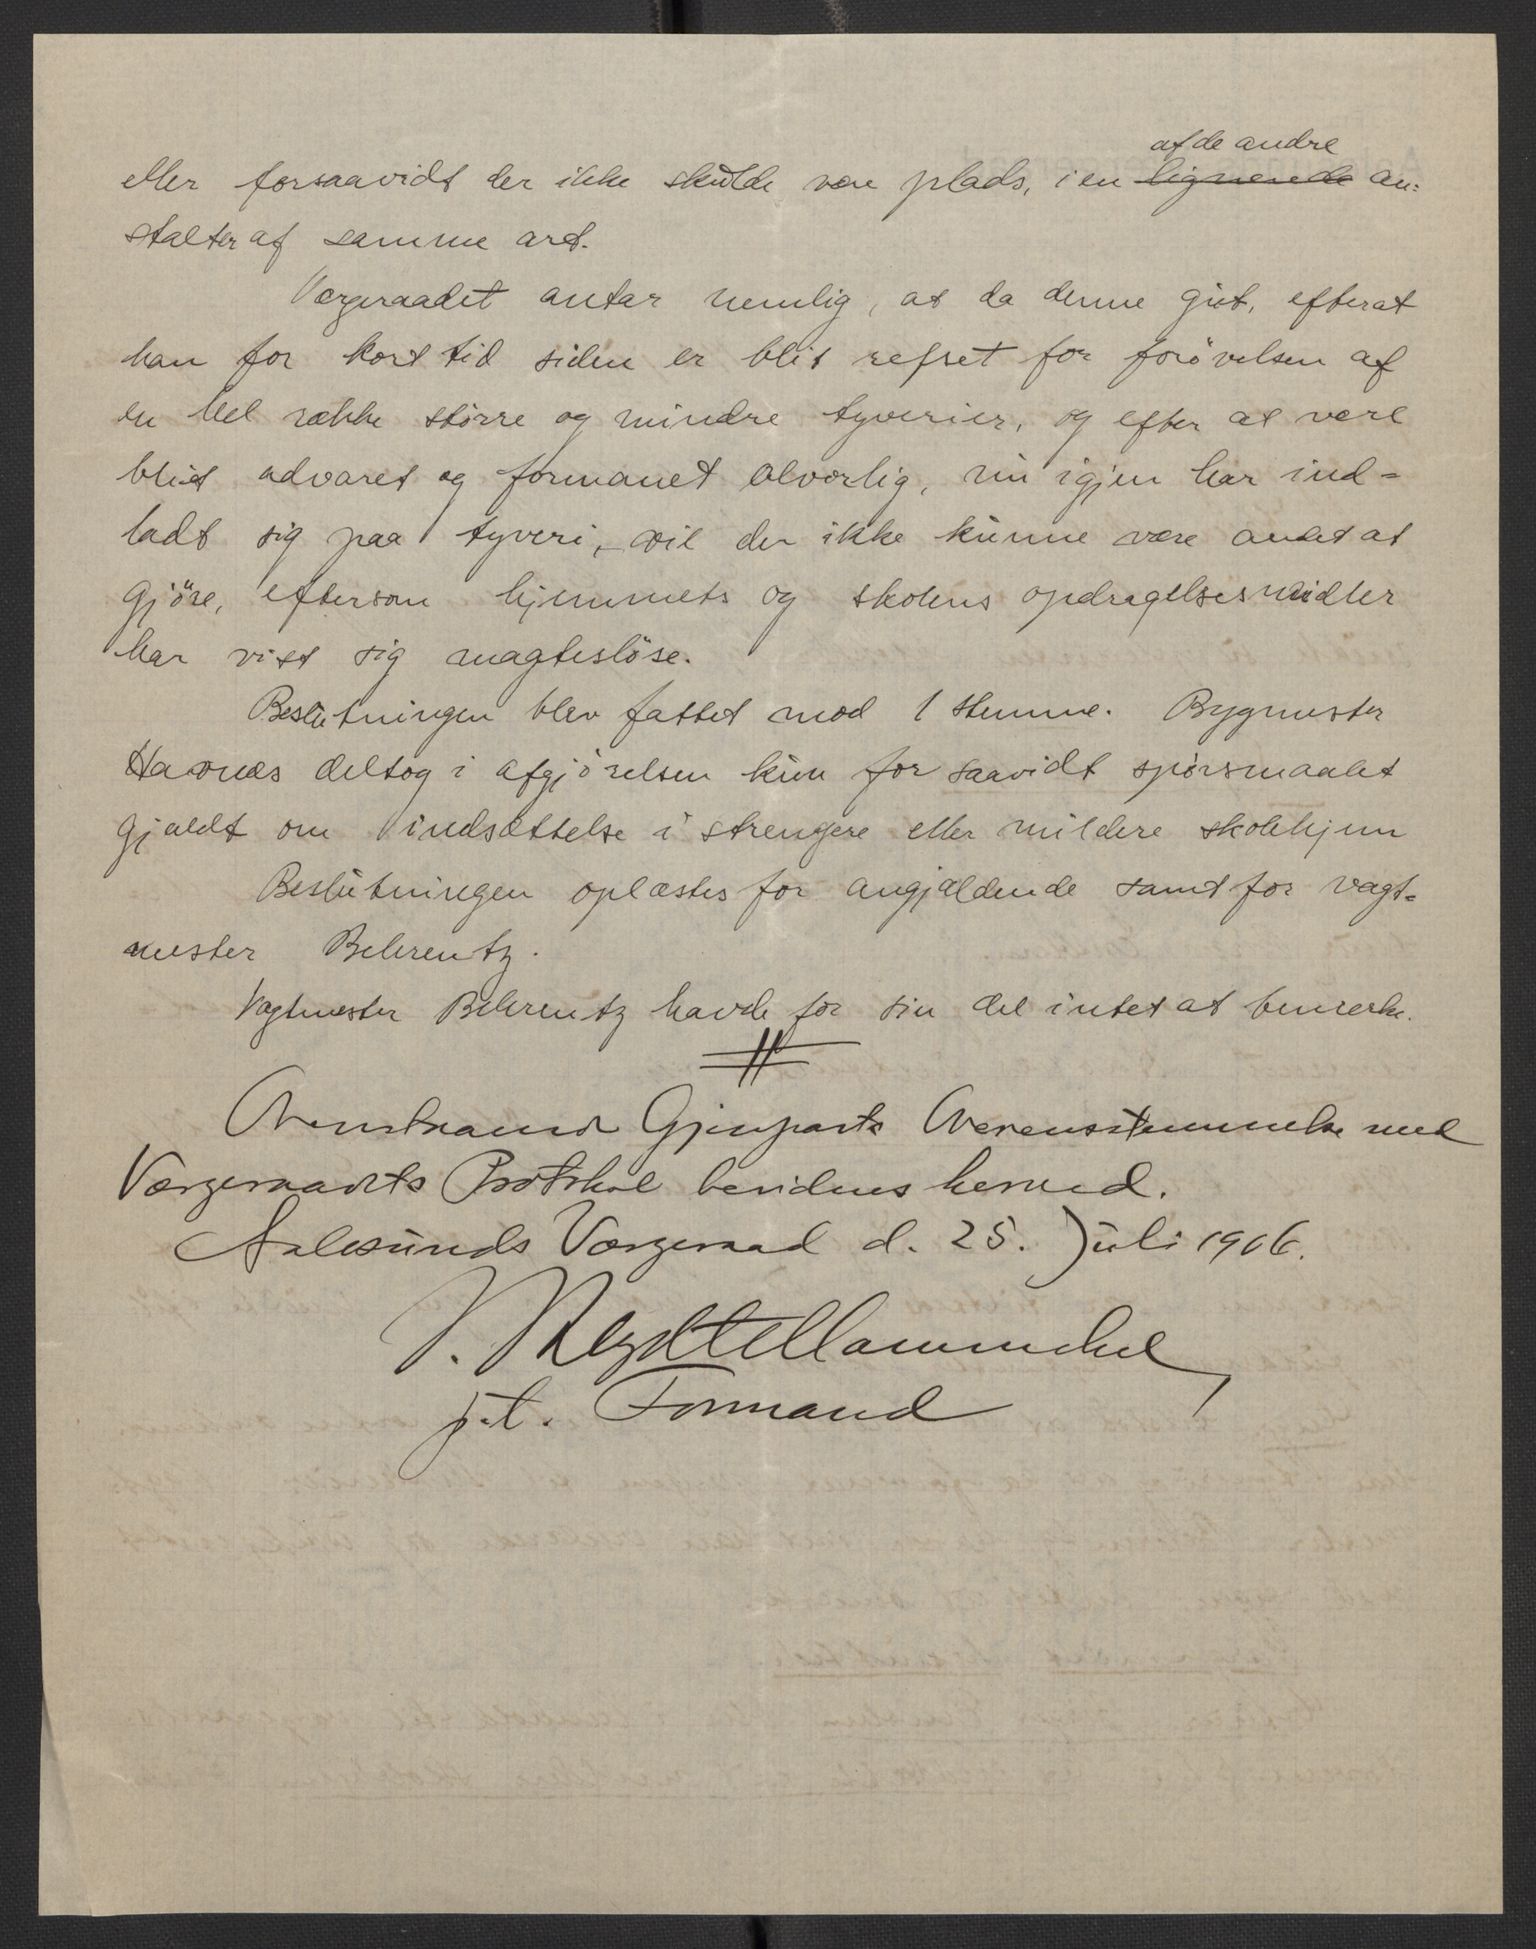 af de andre
eller forsaavidt der ikke skulde være plads, i en lignende an=
stalter af samme art.
Værgeraadet antar nemlig, at da denne gut, efterat
han for kort tid siden er blit refset for forövelsen af
en hel række större og mindre tyverier, og efter at være
blit advaret og formanet alvorlig, nu igjen har ind=
ladt sig paa tyveri, vil der ikke kunne være andet at
gjöre, eftersom hjemmets og skolens opdragelsesmidler
har vist sig magteslöse.
Beslutningen blev fattet mod 1 stemme. Bygmester
Havnæs deltog i afgjörelsen kun for saavidt spörsmaalet
gjaldt om indsættelse i strengere eller mildere skolehjem
Beslutningen oplæstes for angjældende samt for vagt=
mester Behrentz.
Vagtmester Behrentz havde for sin del intet at bemerke.
Ovenstaaende Gjenparts Overensstemmelse med
Værgeraadets Protokol bevidnes herved.
Aalesunds Værgeraad d. 25. Juli 1906.
p.t. Formand